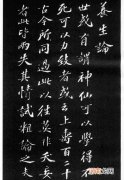 養生論
世或有謂神仙可以學得不
死可以力致者或云上壽百二十
古今所同過此以往莫非妖妄
者此皆兩失其情試粗論之夫